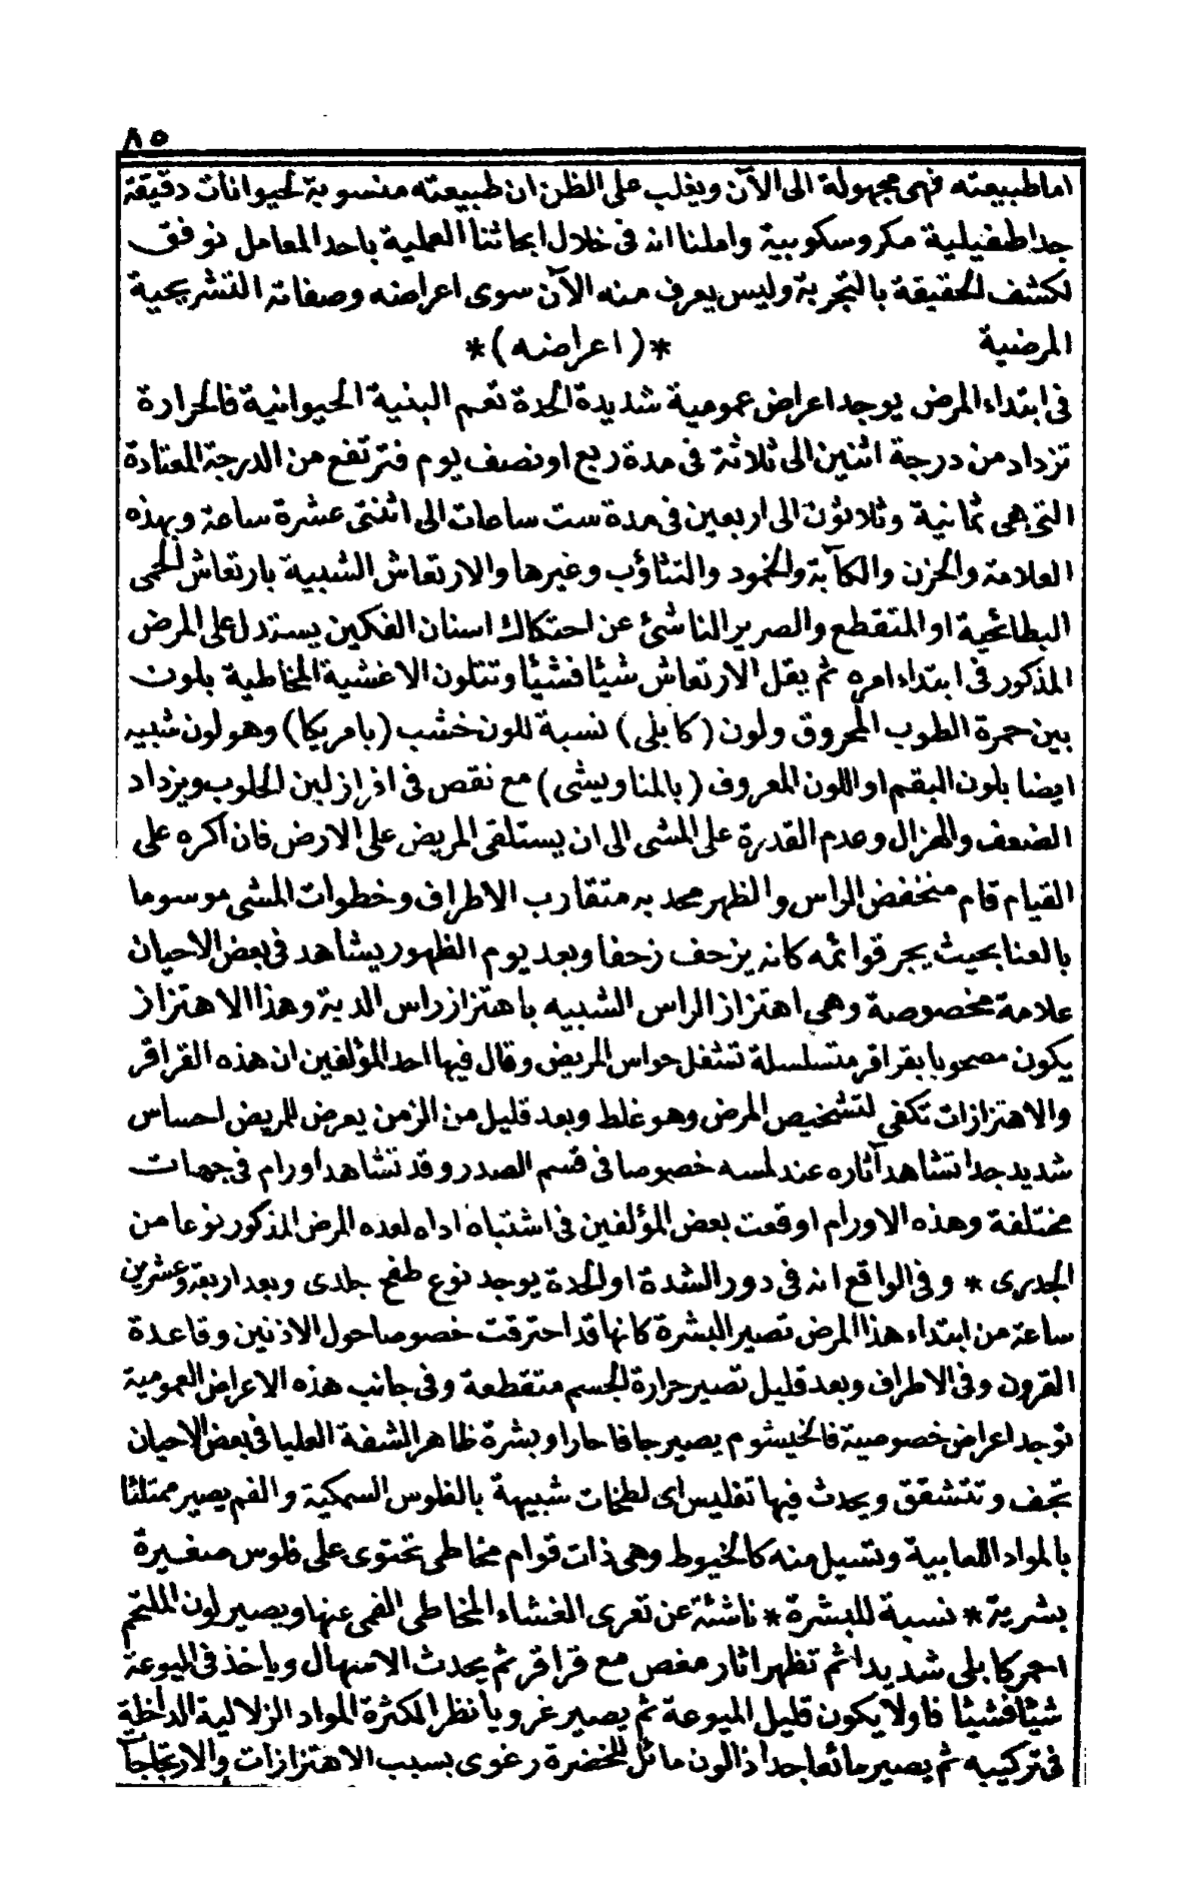 ٨٥
اما طبيعته فهى مجهولة الى الآن ويغلب على الظن ان طبيعته منسوبة لحيوانات دقيقة
جدا طفيلية مكروسكوبية واملنا انه فى خلال ابحاثنا العملية باحد المعامل نوفق
لكشف الحقيقة بالتجربة وليس يعرف منه الآن سوى اعراضه وصفاته التشريحية
المرضية *(اعراضه)*
فى ابتداء المرض يوجد اعراض عمومية شديدة الحدة تعم البنية الحيوانية فالحرارة
تزداد من درجة اثنين الى ثلاثة فى مدة ربع او نصف يوم فترتفع من الدرجة المعتادة
التى هى ثمانية وثلاثون الى اربعين فى مدة ست ساعات الى اثنتى عشرة ساعة وبهذه
العلامة والحزن والكآبة والخمود والتثاؤب وغيرها والارتعاش الشبية بارتعاش الحمى
البطائحية او المتقطع والصرير الناشئ عن احتكاك اسنان الفكين يستدل على المرض
المذكور فى ابتداء امره ثم يقل الارتعاش شيئا فشيئا وتتلون الاغشية المخاطية بلون
بين حمرة الطوب المحروق ولون (كابلى) نسبة للون خشب (بامريكا) وهو لون شبيه
ايضا بلون البقم او اللون المعروف (بالمناويشى) مع نقص فى افراز لبن الحلوب ويزداد
الضعف والهزال وعدم القدرة على المشى الى ان يستلقى المريض على الارض فان اكره على
القيام قام منخفض الراس والظهر محدبه متقارب الاطراف وخطوات المشى موسوما
بالعنا بحيث يجر قوائمه كانه يزحف زحفا وبعد يوم الظهور يشاهد فى بعض الاحيان
علامة مخصوصة وهى اهتزاز الراس الشبيه باهتزاز راس الدبة وهذا الاهتزاز
يكون مصحوبا بقراقر متسلسلة تشغل حواس المريض وقال فيها احد المؤلفين ان هذه القراقر
والاهتزازات تكفى لتشخيص المرض وهو غلط وبعد قليل من الزمن يعرض للمريض احساس
شديد جدا تشاهد آثاره عند لمسه خصوصا فى قسم الصدر وقد تشاهد اورام فى جهات
مختلفة وهذه الاورام اوقعت بعض المؤلفين فى اشتباه اداه لعده المرض المذكور نوعا من
الجدرى * وفى الواقع انه فى دور الشدة او الحدة يوجد نوع طفح جلدى وبعد اربعة وعشرين
ساعة من ابتداء هذا المرض تصير البشرة كانها قد احترقت خصوصا حول الاذنين وقاعدة
القرون وفى الاطراف وبعد قليل تصير حرارة الجسم متقطعة وفى جانب هذه الاعراض العمومية
توجد اعراض خصوصية فالخيشوم يصير جافا حارا وبشرة ظاهر الشفة العليا فى بعض الاحيان
تجف وتتشقق ويحدث فيها تفليس اى لطخات شبيهة بالفلوس السمكية والفم يصير ممتلئا
بالمواد اللعابية وتسيل منه كالخيوط وهى ذات قوام مخاطى تحتوى على فلوس صغيرة
بشرية * نسبة للبشرة * ناشئة عن تعرى الغشاء المخاطى الفمى عنها ويصير لون الملتحم
احمر كابلى شديدا ثم تظهر اثار مغص مع قراقر ثم يحدث الاسهال وياخذ فى الميوعة
شيئا فشيئا فاولا يكون قليل الميوعة ثم يصير غرويا نظرا لكثرة المواد الزلالية الداخلة
فى تركيبه ثم يصير مائعا جدا ذا لون مائل للخضرة رغوى بسبب الاهتزازات والارتجاجات